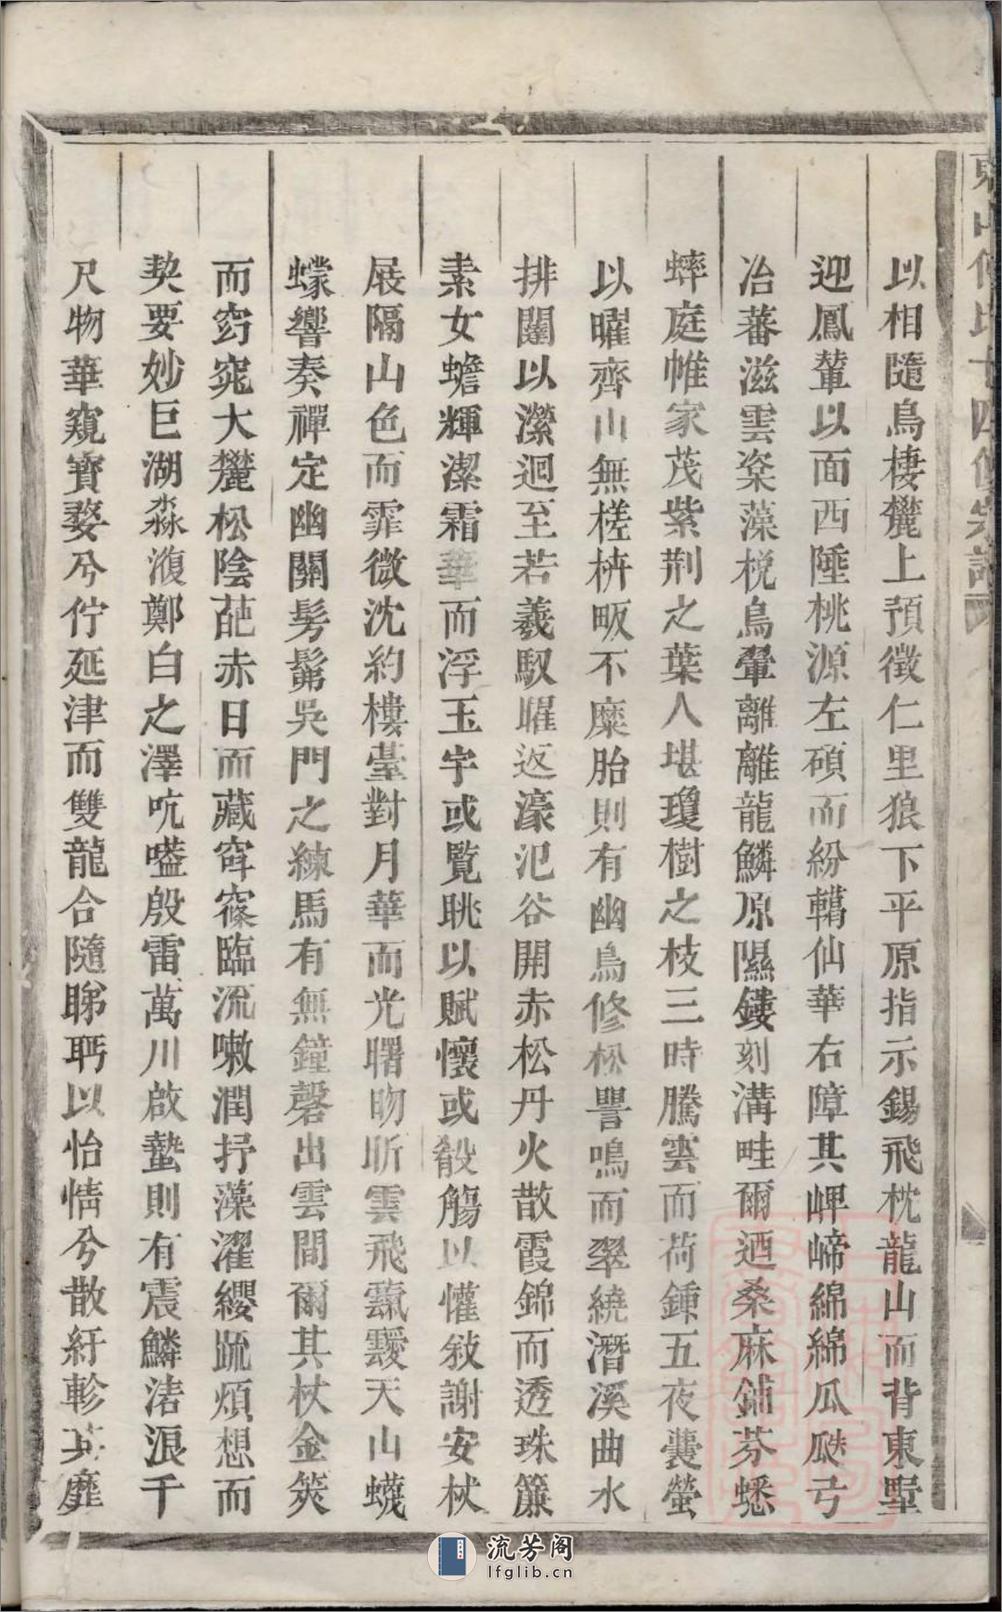 以相隨鳥棲龍上預徵仁里狼下平原指示錫飛枕龍山而背東墅
迎鳳輦以面西陲桃源左碩而紛轕仙華右障其岬崹綿綿瓜瓞弓
冶蕃滋雲楶藻梲鳥翬離離龍鱗原隰鏤刻溝畦爾迺桑麻鋪芬蟋
蟀庭帷家茂紫荆之葉人堪瓊樹之枝三時騰雲而荷鍾五夜囊螢
以曜齊山無槎枿畈不麋胎則有幽鳥修松譻鳴而翠繞潛溪曲水
排闥以瀠迴至若羲馭曜返濠汜谷開赤松丹火散霞錦而透珠簾
素女蟾輝潔霜華而浮玉宇或覧眺以賦懷或殽觴以懽敍謝安杖
屐隔山色而霏微沈約樓臺對月華而光曙昒昕雲飛靉靆天山蠛
蠓響奏禪定幽關髣髴吳門之練馬有無鐘磬出雲間爾其杖金筴
而窈窕大龍松陰葩赤日而藏窂窱臨流嗽潤抒藻濯纓疏煩想而
契要妙巨湖淼澓鄭白之澤吭嗑殷雷萬川啟蟄則有震鱗浩浪千
尺物華窺寶婺兮佇延津而雙龍合隨睇眄以怡情兮散紆軫其靡
流芳阁
lfglib.cn